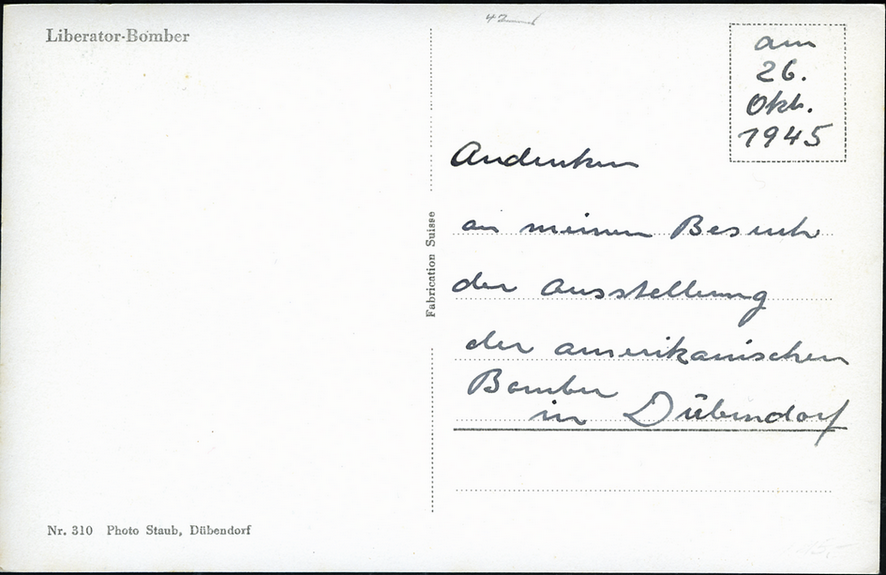 Liberator-Bomber
am
26.
Okt.
1945
Andenken
an meinen Besuch
der Ausstellung
der amerikanischen
Bomber
in Dübendorf
Fabrication Suisse
Nr. 310 Photo Staub, Dübendorf